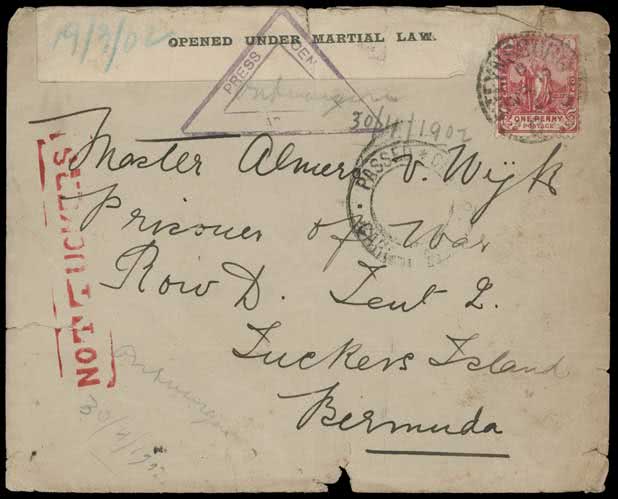 19/3/02
OPENED UNDER MARTIAL LAW.
PRESS CEN
30/4/1902
ONE PENNY
POSTAGE
PASSED
Master Almero v. Wijk
Prisoner of War
Row D. Tent 2.
Tuckers Island
Bermuda
NOT TUCKERS
30/4/190